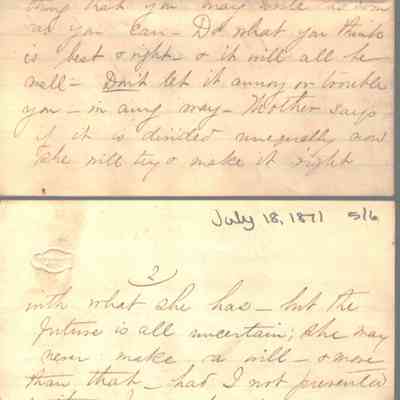 thing that you may write as soon
as you can - Do what you think
is best & right & it will all be
well - Don't let it annoy or trouble
you - in any way - Mother says
if it is divided unequally now
She will try & make it right
July 18, 1871 5/6
2
with what she has - but the
future is all uncertain; she may
never make a will - & more
than that - had I not prevented